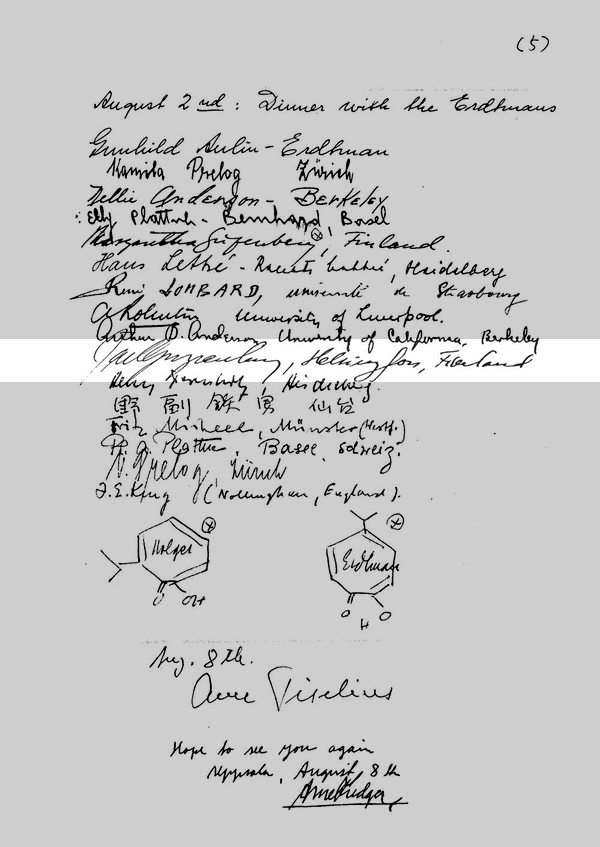 (5)
August 2nd: Dinner with the Erdtmans
Gunhild Aulin-Erdtman
Kamila Prelog Zürich
Nellie Anderson - Berkeley
Elly Plattner - Bernhard, Basel
Margaretha, Finland.
Hans Lettré - Lettré, Heidelberg
René LOMBARD, université de Strasbourg
University of Liverpool.
Arthur G. Anderson University of California, Berkeley
, Helsingfors, Finland
, Heidelberg.
野副 鉄男 仙台
Fritz Micheel, Münster (Westf.)
Pl. A. Plattner, Basel, Schweiz.
V. Prelog, Zürich
F. E. King (Nottingham, England).
Holger
O OH
Erdtman
O O
H
Aug. 8th.
Arne Tiselius
Hope to see you again
Uppsala, August 8th
Arne Fredga